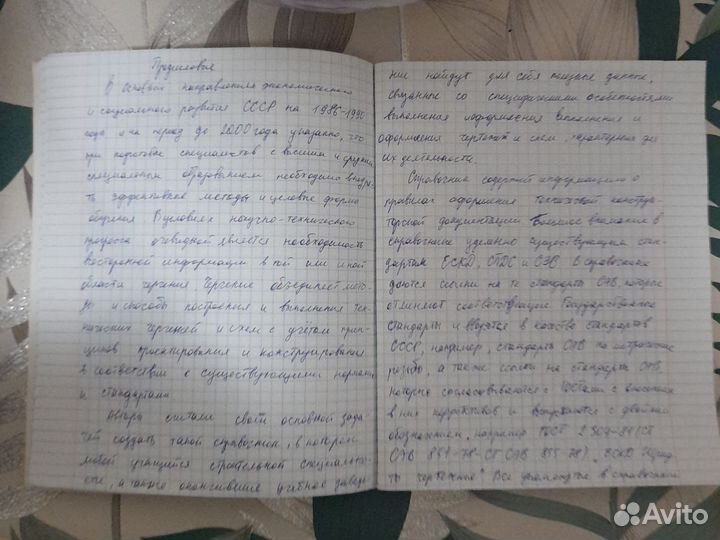 Предисловья
В основой направления экономического
и социального развития СССР на 1986-1990
года и на период до 2000 года указано, что
при подготовке специалистов с высшим и средним
специальным образованием необходимо внедря-
ть эффективные методы и целовые формы
обучения В условиях научно-технического
прогресса очевидной является необходимость
всесторонней информации в той или иной
области черчения Черчение объединяет мето-
ды и способы построения и выполнения тех-
нических чертежей и схем с учётом прин-
ципов проектирования и конструирования
в соответствии к существующими нормами
и стандартами
Автора считали своей основной зада-
чей создать такой справочник, в котором
любой учащийся строительной специально-
сти, а также окончившие учебное заведе-
ние найдут для себя нужные данные,
связанные со специфическими особенностями
выполнения и оформления чертежей и схем, характерных для
их деятельности.
Справочник содержит информацию о
правилах оформления технической конструк-
торской документации Большое внимание в
справочнике уделено существующим стан-
дартам ЕСКД, СПДС и СЭВ. В справочнике
даются ссылки на те стандарты СЭВ, которые
отменяют соответствующие Государственные
стандарты и вводятся в качестве стандартов
СССР, например, стандарты СЭВ на
резьбы, а также ссылки на стандарты СЭВ,
которые согласовываются с ГОСТами с внесением
в них коррективов и выпускаются с двойным
обозначением, например ГОСТ 2.304-81 (СТ
СЭВ 851-78-СТ СЭВ 855-78), ЕСКД
чертёжные". Все в справочнике
Avito